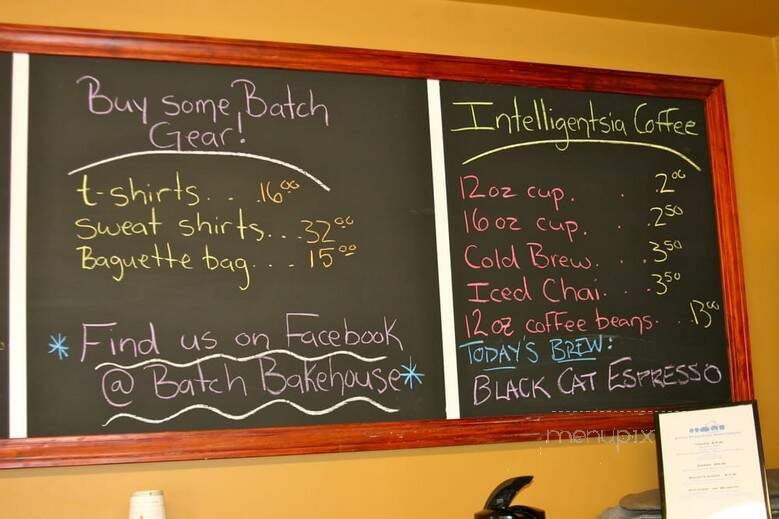 Buy some Batch
Gear!
t-shirts. . .16⁰⁰
Sweat shirts. . . 32⁰⁰
Baguette bag. . . . 15⁰⁰
* Find us on Facebook
@ Batch Bakehouse *
Intelligentsia Coffee
12oz cup. . .2⁰⁰
16oz cup. . .2⁵⁰
Cold Brew. . .3⁵⁰
Iced Chai. . .3⁵⁰
12oz coffee beans. . .13⁰⁰
TODAY'S BREW:
BLACK CAT ESPRESSO
menupix